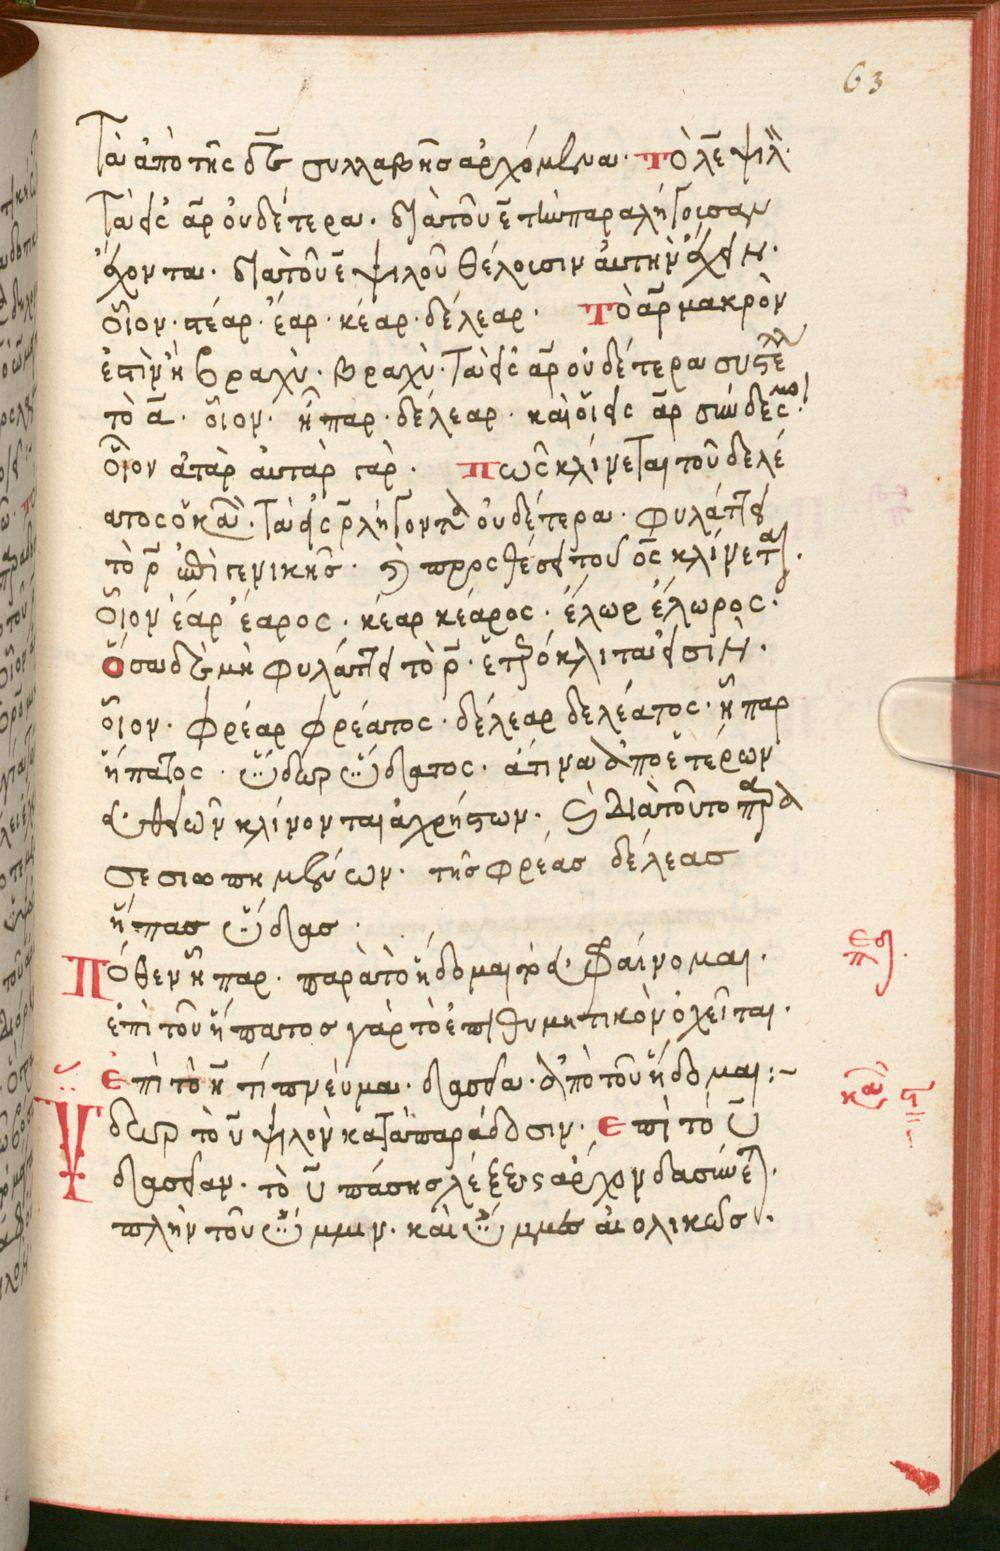 63
Τὰ ἀπὸ τῆς δε συλλαβῆς ἀρχόμενα· Τὸ λε ψιλ
Τὰ εἰς αρ οὐδέτερα· διὰ τοῦ ε τὴν παραλήγουσαν
ἔχοντα· διὰ τοῦ ε ψιλοῦ θέλουσιν αὐτὴν ἔχειν·
οἷον· στέαρ· ἔαρ· κέαρ· δέλεαρ· Τὸ αρ μακρὸν
ἐστὶν ἢ βραχὺ· βραχὺ· Τὰ εἰς αρ οὐδέτερα συστέλ
τὸ α· οἷον· ἧπαρ· δέλεαρ· καὶ οἱ εἰς αρ σύνδεσμοι
οἷον ἀτὰρ αὐτὰρ γάρ· Πῶς κλίνεται τοῦ δελέ
ατος ὁ κανὼν· Τὰ εἰς ρ λήγοντα οὐδέτερα· φυλάττει
τὸ ρ ἐπὶ γενικῆς· καὶ προσθέσει τοῦ ος κλίνεται·
οἷον ἔαρ ἔαρος· κέαρ κέαρος· ἕλωρ ἕλωρος·
Ὅσα δὲ μὴ φυλάττει τὸ ρ· ἑτερόκλιτα εἰσιν·
οἷον· φρέαρ φρέατος· δέλεαρ δελέατος· ἧπαρ
ἥπατος· ὕδωρ ὕδατος· ἅτινα ἀπὸ ἑτέρων
εὐθειῶν κλίνονται ἀχρήστων· καὶ διὰ τοῦτο παρὰ
σεσιωπημένων· τῆς φρέας δέλεας
ἧπας ὕδας·
Πόθεν ἧπαρ· παρὰ τὸ ἥδομαι τὸ εὐφραίνομαι·
ἐπὶ τοῦ ἥπατος γὰρ τὸ ἐπιθυμητικὸν ὀχεῖται·
Ἐπὶ τὸ η τί πνεύμα· δασεῖα· ἀπὸ τοῦ ἥδομαι:~
Ὕδωρ τὸ υ ψιλὸν κατὰ παράδοσιν· Ἐπὶ τὸ υ
δασεῖαν· τὸ υ πάσης λέξεως ἄρχον δασύνεται·
πλὴν τοῦ ὔμμιν· καὶ ὔμμες αἰολικῶς·